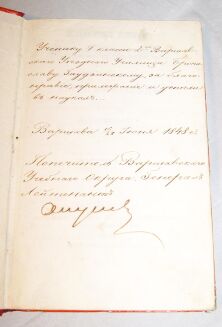 Ученику 1 класса 2го Варшав-
скаго Уезднаго Училища Брони-
славу Гаудынскому, за благо-
нравіе, прилежаніе и успехи
въ наукахъ.
Варшава Іюня 1848 г.
Попечитель Варшавскаго
Учебнаго Округа, Генералъ
Лейтенантъ